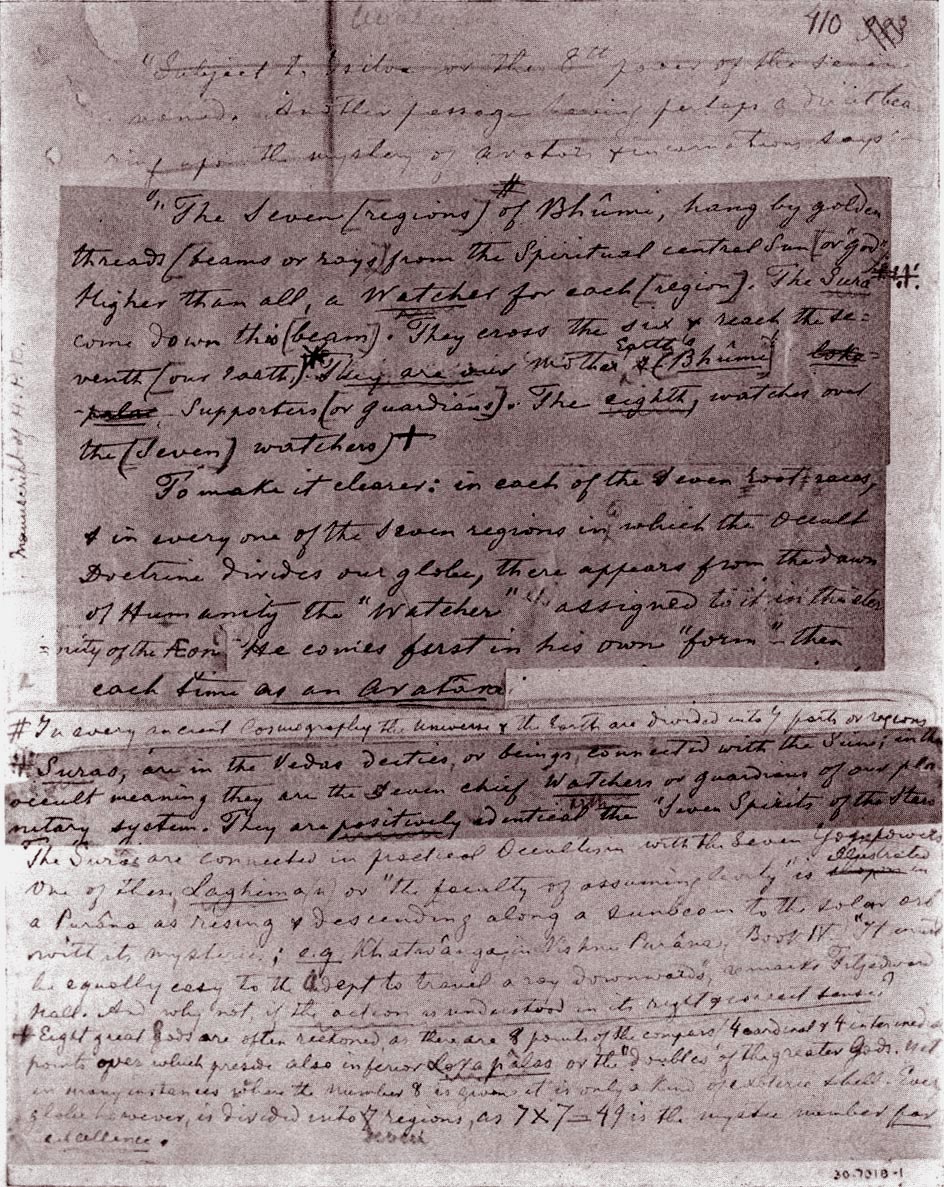 Avatara
410
"Subject 1. or the 8th power of the seven
Another passage having perhaps a direct bea
ring upon the mystery of avatars & incarnations says
"The Seven [regions]# of Bhûmi, hang by golden
threads [beams or rays] from the Spiritual central Sun [or "god"
Higher than all, a Watcher for each [region]. The Sura
come down this [beam]. They cross the six & reach the se=
venth [our Earth.] They are our Mother Earth's [Bhûmi] loka-
-palas Supporters [or guardians]. The eighth, watches over
the [seven] watchers) †
To make it clearer: in each of the Seven root-races,
& in every one of the Seven regions in which the Occult
Doctrine divides our globe, there appears from the dawn
of Humanity the "Watcher" assigned to it in the eter
nity of the Æon. He comes first in his own "form" – then
each time as an Avatara.
Manuscript of H. P. B.
# In every ancient Cosmography the Universe & the Earth are divided into 7 parts or regions
# Suras, are in the Vedas deities, or beings, connected with the Sun; in the
occult meaning they are the Seven chief Watchers or guardians of our pla
netary system. They are positively identical with the "Seven Spirits of the Stars
The Suras are connected in practical Occultism with the Seven Yoga powers
One of these, Laghima(n) or "the faculty of assuming levity" is shown illustrated in
a Purâna as rising & descending along a sunbeam to the solar orb
with its mysteries; e.g. Khatvânga, in Vishnu Purâna, Book IV. "It must
be equally easy to the Adept to travel a ray downwards", remarks Fitzedward
Hall. And why not, if the action is understood in its right & correct sense?
† Eight great Gods are often reckoned, as there are 8 points of the compass, 4 cardinal & 4 intermediate
points over which preside also inferior Lokapâlas or the "doubles" of the greater Gods. Yet
in many instances where the number 8 is given it is only a kind of exoteric shell. Every
globe however, is divided into 7 seven regions, as 7 X 7 = 49 is the mystic number par
excellence.
30.7318-1